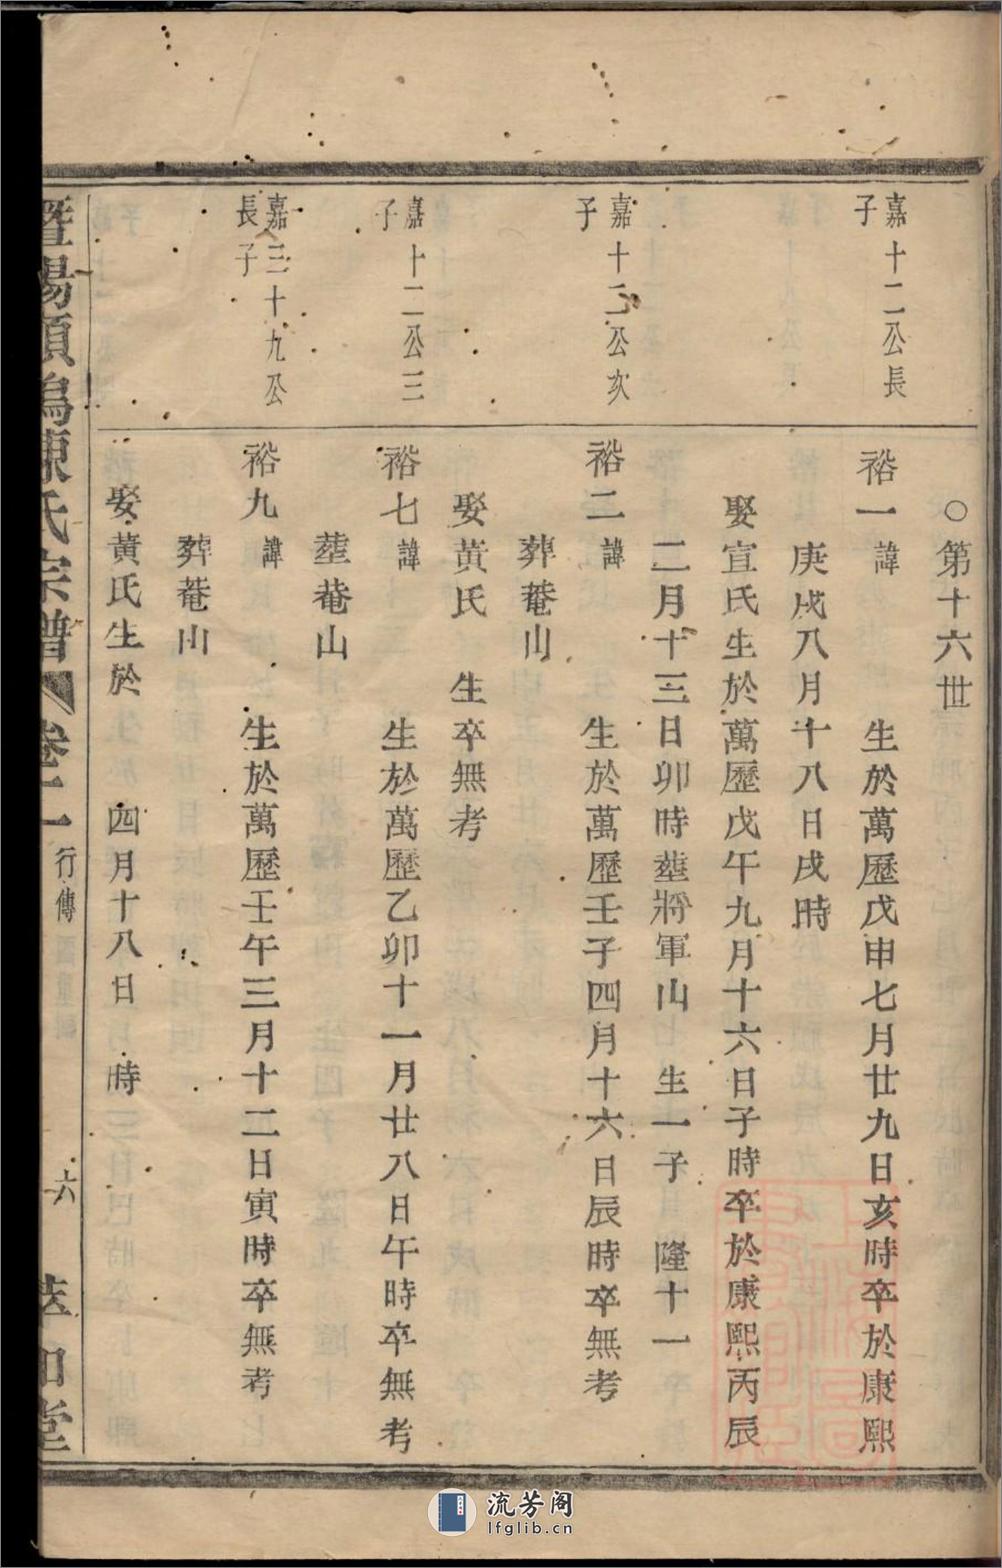 ○第十六世
嘉十二公長
子
裕一諱 生於萬歷戊申七月廿九日亥時卒於康熙
庚戌八月十八日戌時
娶宣氏生於萬歷戊午九月十六日子時卒於康熙丙辰
二月十三日卯時塟將軍山 生一子 隆十一
嘉十二公次
子
裕二諱 生於萬歷壬子四月十六日辰時卒無考
葬菴山
娶黃氏 生卒無考
嘉十二公三
子
裕七諱 生於萬歷乙卯十一月廿八日午時卒無考
塟菴山
嘉三十九公
長子
裕九諱 生於萬歷壬午三月十二日寅時卒無考
葬菴山
娶黃氏生於 四月十八日 時
暨陽項鄔陳氏宗譜 卷二 行傳 六 萃和堂
流芳阁
lfglib.cn